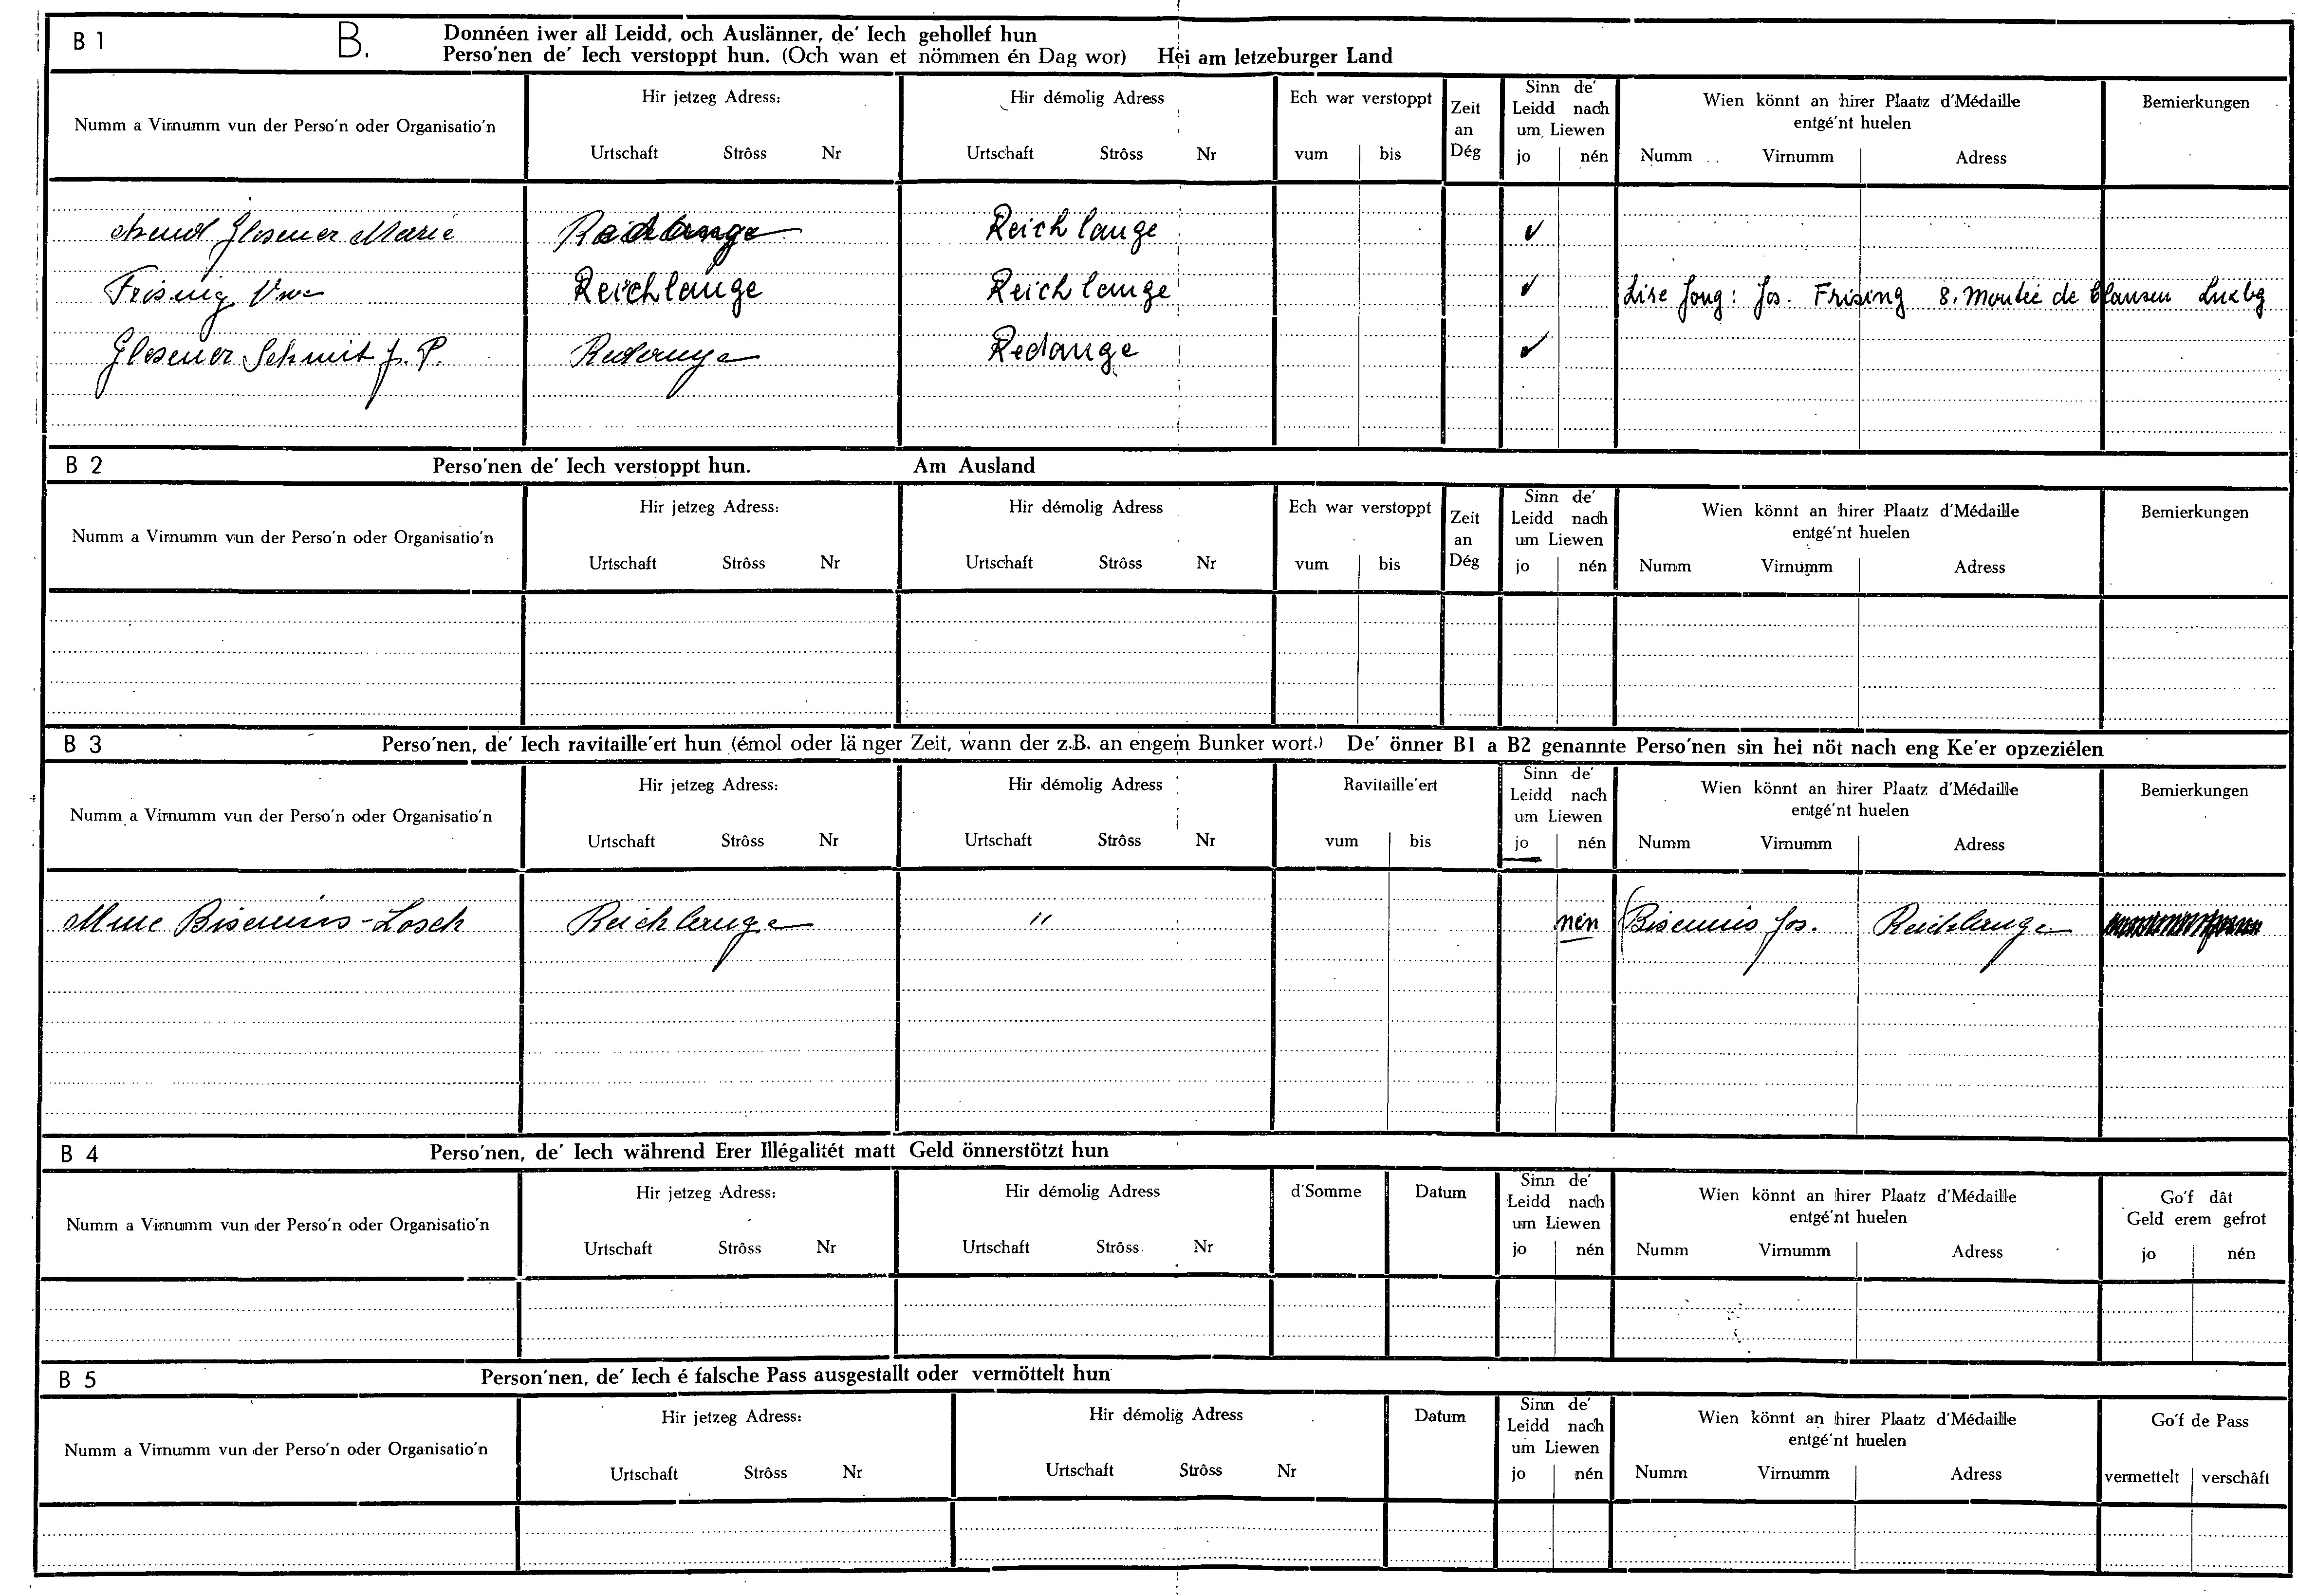 B 1 B. Donnéen iwer all Leidd, och Auslänner, de' Iech gehollef hun
Perso'nen de' Iech verstoppt hun. (Och wan et nömmen én Dag wor) Hei am letzeburger Land
Numm a Virnumm vun der Perso'n oder Organisatio'n
Hir jetzeg Adress:
Urtschaft Strôss Nr
Hir démolig Adress
Urtschaft Strôss Nr
Ech war verstoppt
vum bis
Zeit
an
Dég
Sinn de'
Leidd nach
um Liewen
jo nén
Wien könnt an hirer Plaatz d'Médaille
entgé'nt huelen
Numm Virnumm Adress
Bemierkungen
Glesener Marie Reichlange ✓
Frising Vve Reichlange Reichlange ✓ Lire Jong: Jos. Frising 8. Montée de Clausen Luxbg
Glesener Schmit J. P. Redange Redange ✓
B 2 Perso'nen de' Iech verstoppt hun. Am Ausland
Numm a Virnumm vun der Perso'n oder Organisatio'n
Hir jetzeg Adress:
Urtschaft Strôss Nr
Hir démolig Adress
Urtschaft Strôss Nr
Ech war verstoppt
vum bis
Zeit
an
Dég
Sinn de'
Leidd nach
um Liewen
jo nén
Wien könnt an hirer Plaatz d'Médaille
entgé'nt huelen
Numm Virnumm Adress
Bemierkungen
B 3 Perso'nen, de' Iech ravitaille'ert hun (émol oder länger Zeit, wann der z.B. an engem Bunker wort.) De' önner B1 a B2 genannte Perso'nen sin hei nöt nach eng Ke'er opzeziélen
Numm a Virnumm vun der Perso'n oder Organisatio'n
Hir jetzeg Adress:
Urtschaft Strôss Nr
Hir démolig Adress
Urtschaft Strôss Nr
Ravitaille'ert
vum bis
Sinn de'
Leidd nach
um Liewen
jo nén
Wien könnt an hirer Plaatz d'Médaille
entgé'nt huelen
Numm Virnumm Adress
Bemierkungen
Mme Bisenius-Losch Reichlange " nén Bisenius Jos. Reichlange
B 4 Perso'nen, de' Iech während Erer Illégalitét matt Geld önnerstötzt hun
Numm a Virnumm vun der Perso'n oder Organisatio'n
Hir jetzeg Adress:
Urtschaft Strôss Nr
Hir démolig Adress
Urtschaft Strôss Nr
d'Somme
Datum
Sinn de'
Leidd nach
um Liewen
jo nén
Wien könnt an hirer Plaatz d'Médaille
entgé'nt huelen
Numm Virnumm Adress
Go'f dât
Geld erem gefrot
jo nén
B 5 Person'nen, de' Iech é falsche Pass ausgestallt oder vermöttelt hun
Numm a Virnumm vun der Perso'n oder Organisatio'n
Hir jetzeg Adress:
Urtschaft Strôss Nr
Hir démolig Adress
Urtschaft Strôss Nr
Datum
Sinn de'
Leidd nach
um Liewen
jo nén
Wien könnt an hirer Plaatz d'Médaille
entgé'nt huelen
Numm Virnumm Adress
Go'f de Pass
vermettelt verschâft